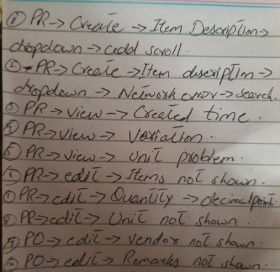 ① PR → Create → Item Description →
dropdown → add scroll.
② → PR → Create → Item description →
dropdown → Network error → search.
③ PR → view → Created time.
④ PR → view → Variation.
⑤ PR → view → Unit problem.
PR → edit → Items not shown.
PR → edit → Quantity → decimal point.
PR → edit → Unit not shown.
PO → edit → vendor not shown.
PO → edit → Remarks not shown.